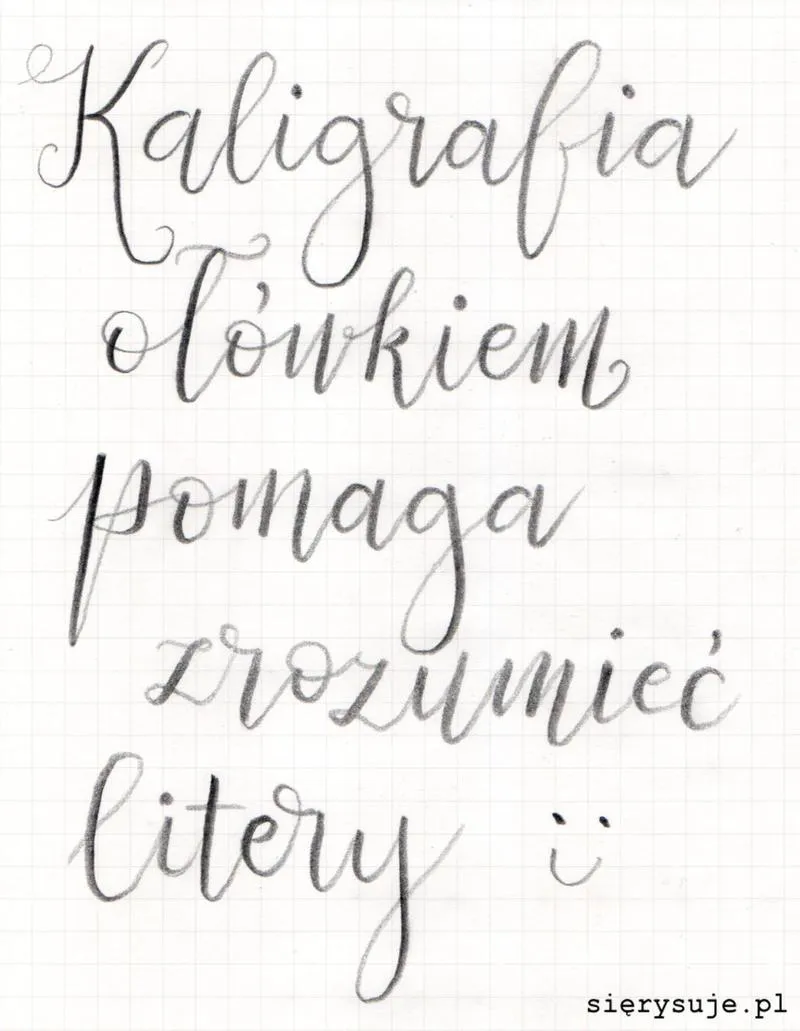 Kaligrafia
ołówkiem
pomaga
zrozumieć
litery :)
sięrysuje.pl